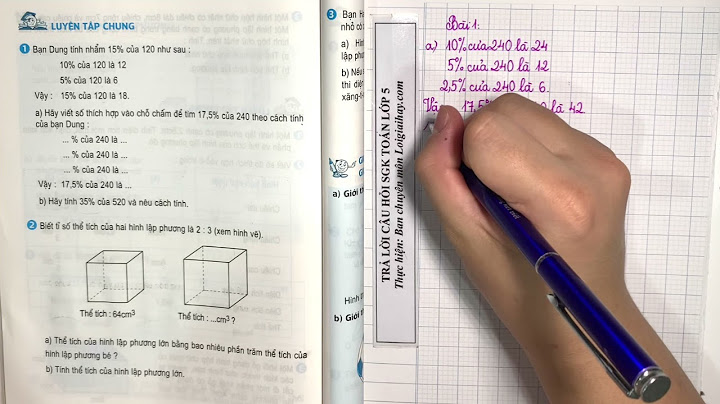 LUYỆN TẬP CHUNG
1 Bạn Dung tính nhẩm 15% của 120 như sau :
10% của 120 là 12
5% của 120 là 6
Vậy : 15% của 120 là 18.
a) Hãy viết số thích hợp vào chỗ chấm để tìm 17,5% của 240 theo cách tính
của bạn Dung :
... % của 240 là ...
... % của 240 là ...
... % của 240 là ...
Vậy : 17,5% của 240 là ...
b) Hãy tính 35% của 520 và nêu cách tính.
2 Biết tỉ số thể tích của hai hình lập phương là 2 : 3 (xem hình vẽ).
Thể tích : 64cm³
Thể tích : ...cm³ ?
a) Thể tích của hình lập phương lớn bằng bao nhiêu phần trăm thể tích của
hình lập phương bé ?
b) Tính thể tích của hình lập phương lớn.
3 Bạn
nhỏ
a) Hìn
lập
b) Nếu
thì
a) Giới
Hình
b) Giới
TRẢ LỜI CÂU HỎI SGK TOÁN LỚP 5
Thực hiện: Ban chuyên môn Loigiaihay.com
Bài 1:
a) 10% của 240 là 24
5% của 240 là 12
2,5% của 240 là 6.
17,5% là 42